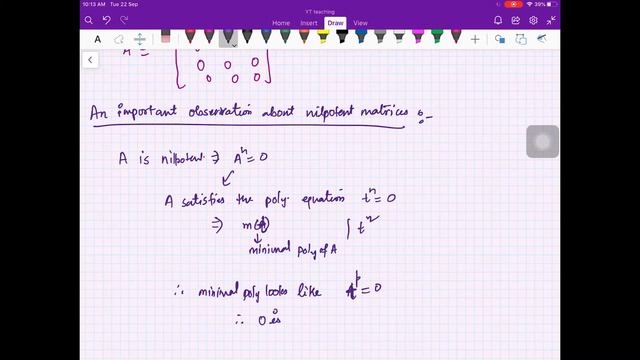 10:13 AM Tue 22 Sep
39%
YT teaching
Home Insert Draw View
A =
0 0 0
0 0 0
An important observation about nilpotent matrices :-
A is nilpotent ⇒ Aⁿ = 0
A satisfies the poly. equation tⁿ = 0
⇒ m(t) | tⁿ
minimal poly of A
∴ minimal poly looks like t^p = 0
∴ 0 is